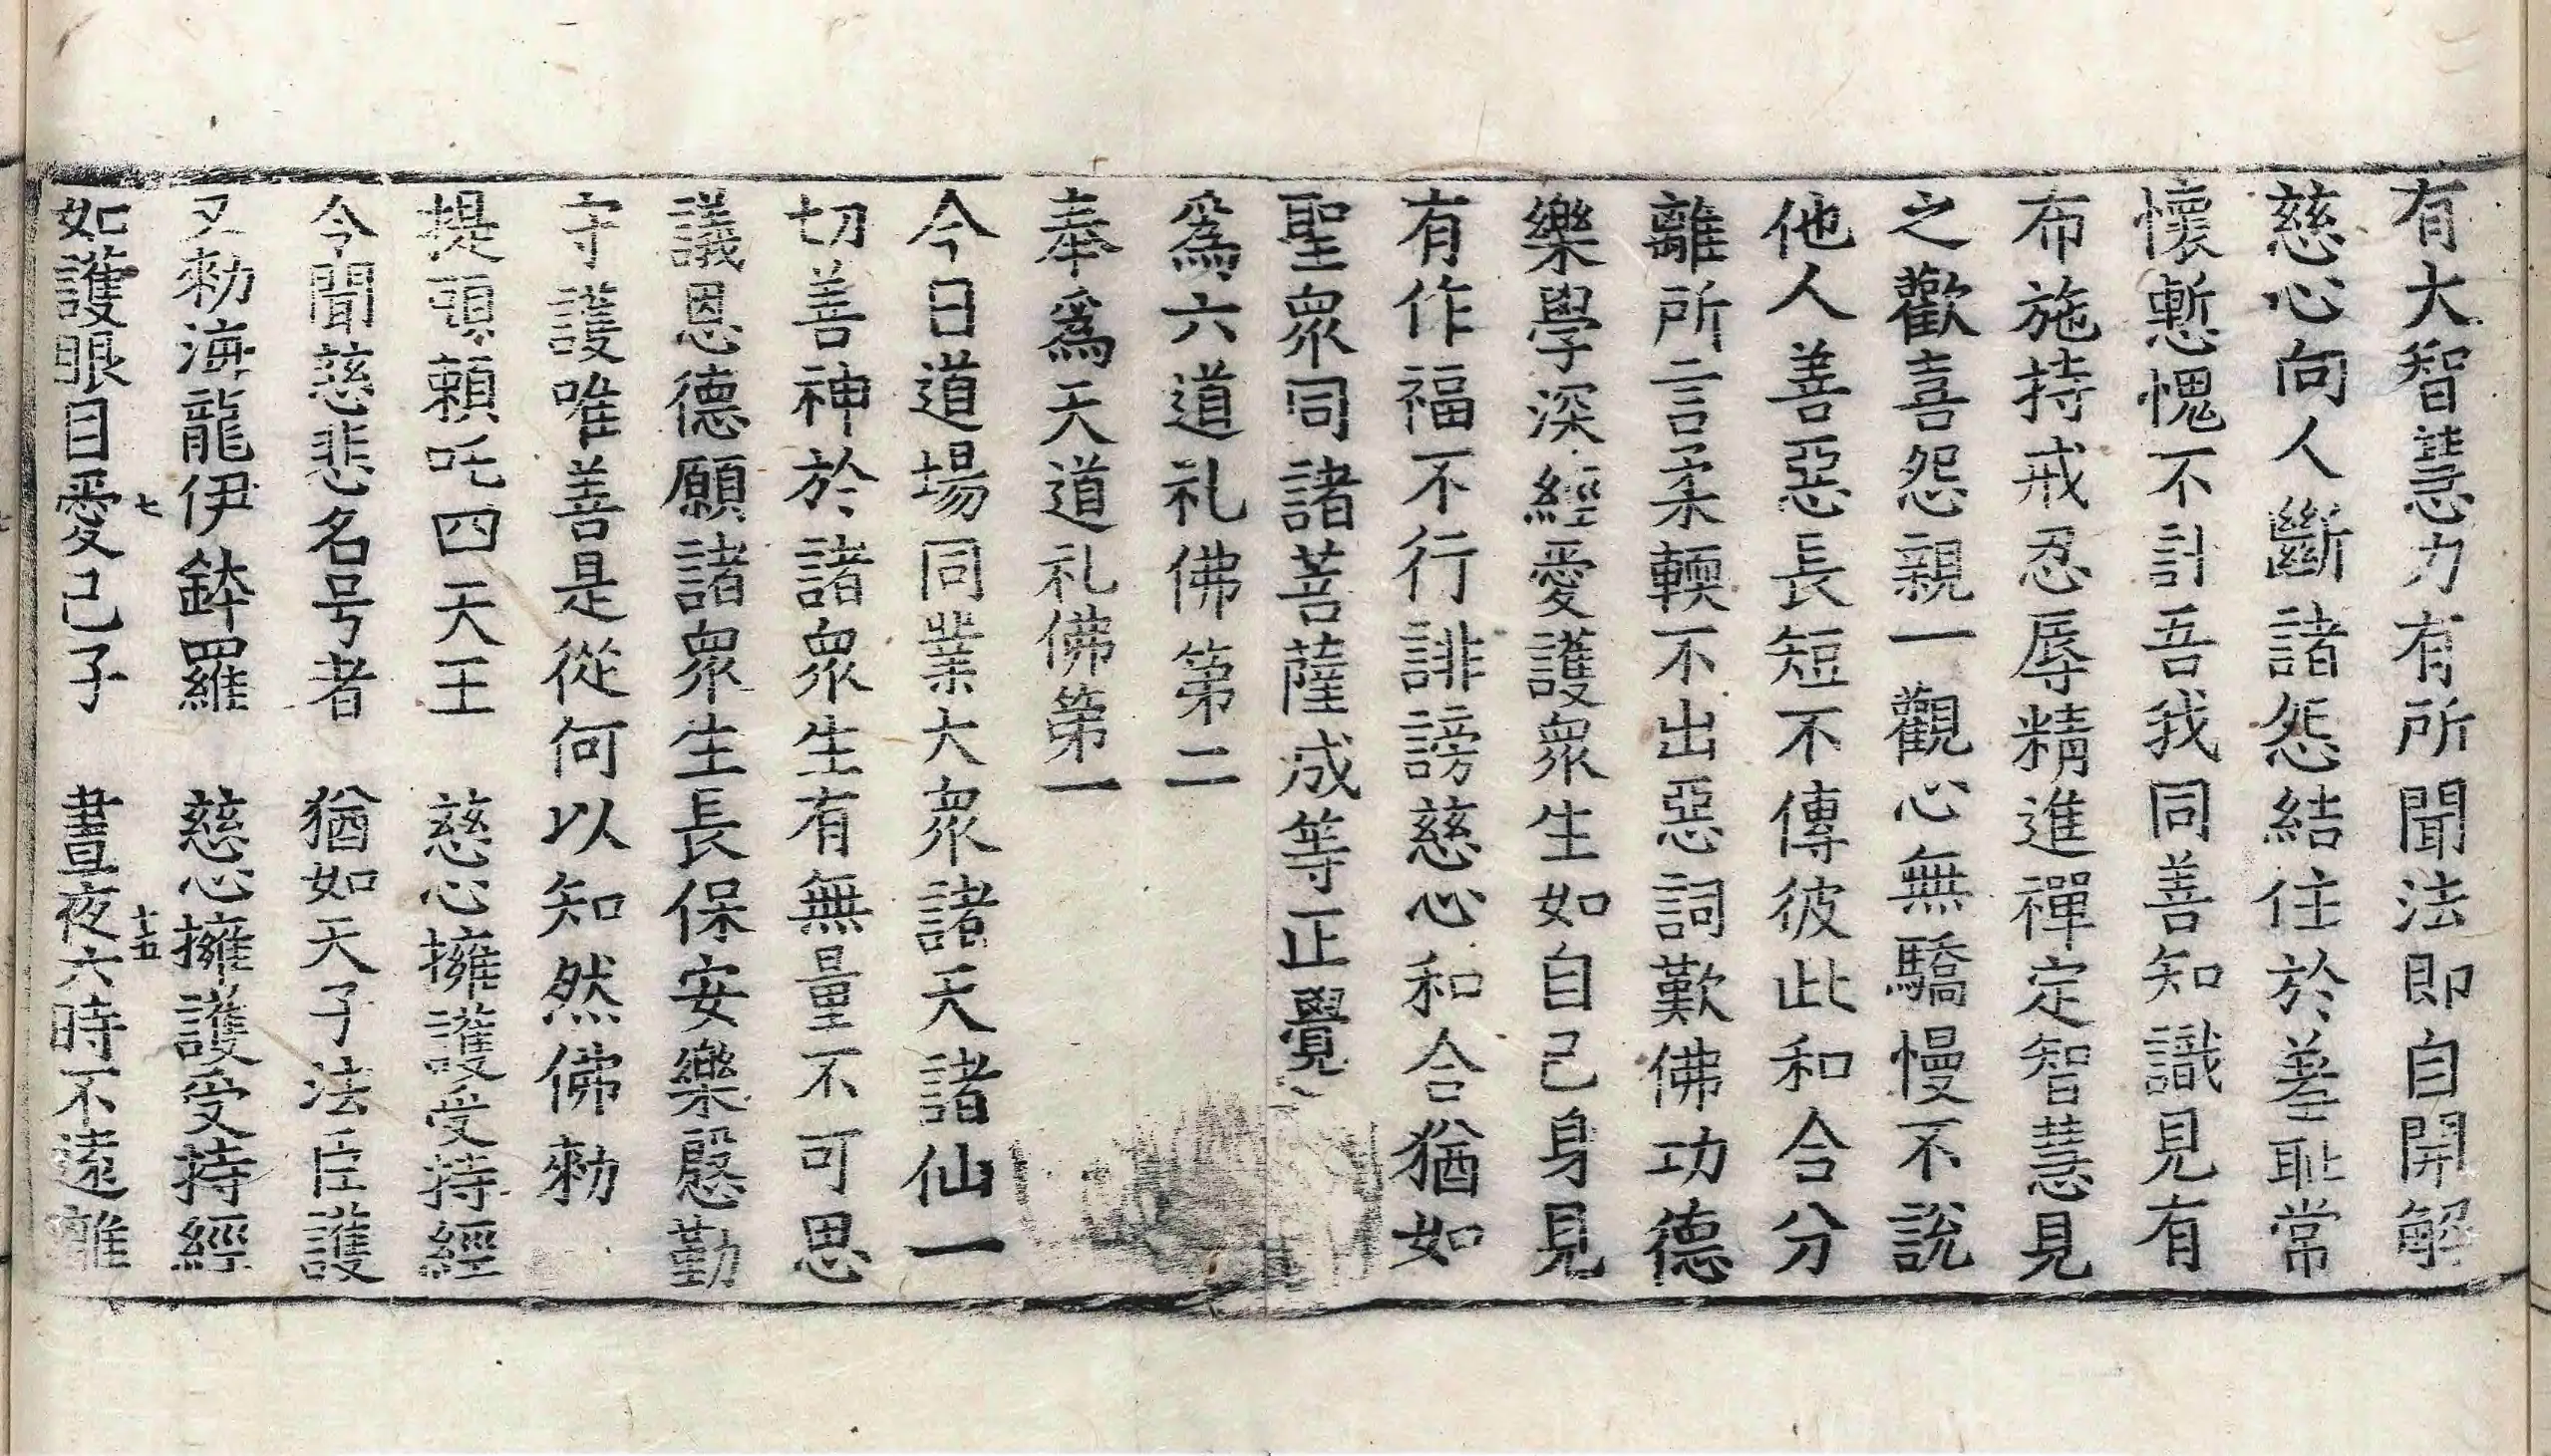 有大智慧力有所聞法即自開解
慈心向人斷諸怨結住於羞耻常
懷慙愧不計吾我同善知識見有
布施持戒忍辱精進禪定智慧見
之歡喜怨親一觀心無驕慢不說
他人善惡長短不傳彼此和合分
離所言柔輭不出惡詞歎佛功德
樂學深經愛護衆生如自己身見
有作福不行誹謗慈心和合猶如
聖衆同諸菩薩成等正覺
爲六道礼佛第二
奉爲天道礼佛第一
今日道場同業大衆諸天諸仙一
切善神於諸衆生有無量不可思
議恩德願諸衆生長保安樂慇勤
守護唯善是從何以知然佛勑
提頭賴吒四天王　慈心擁護受持經
今聞慈悲名号者　猶如天子法臣護
又勑海龍伊鉢羅　慈心擁護受持經
七　十五
如護眼目愛己子　晝夜六時不遠離